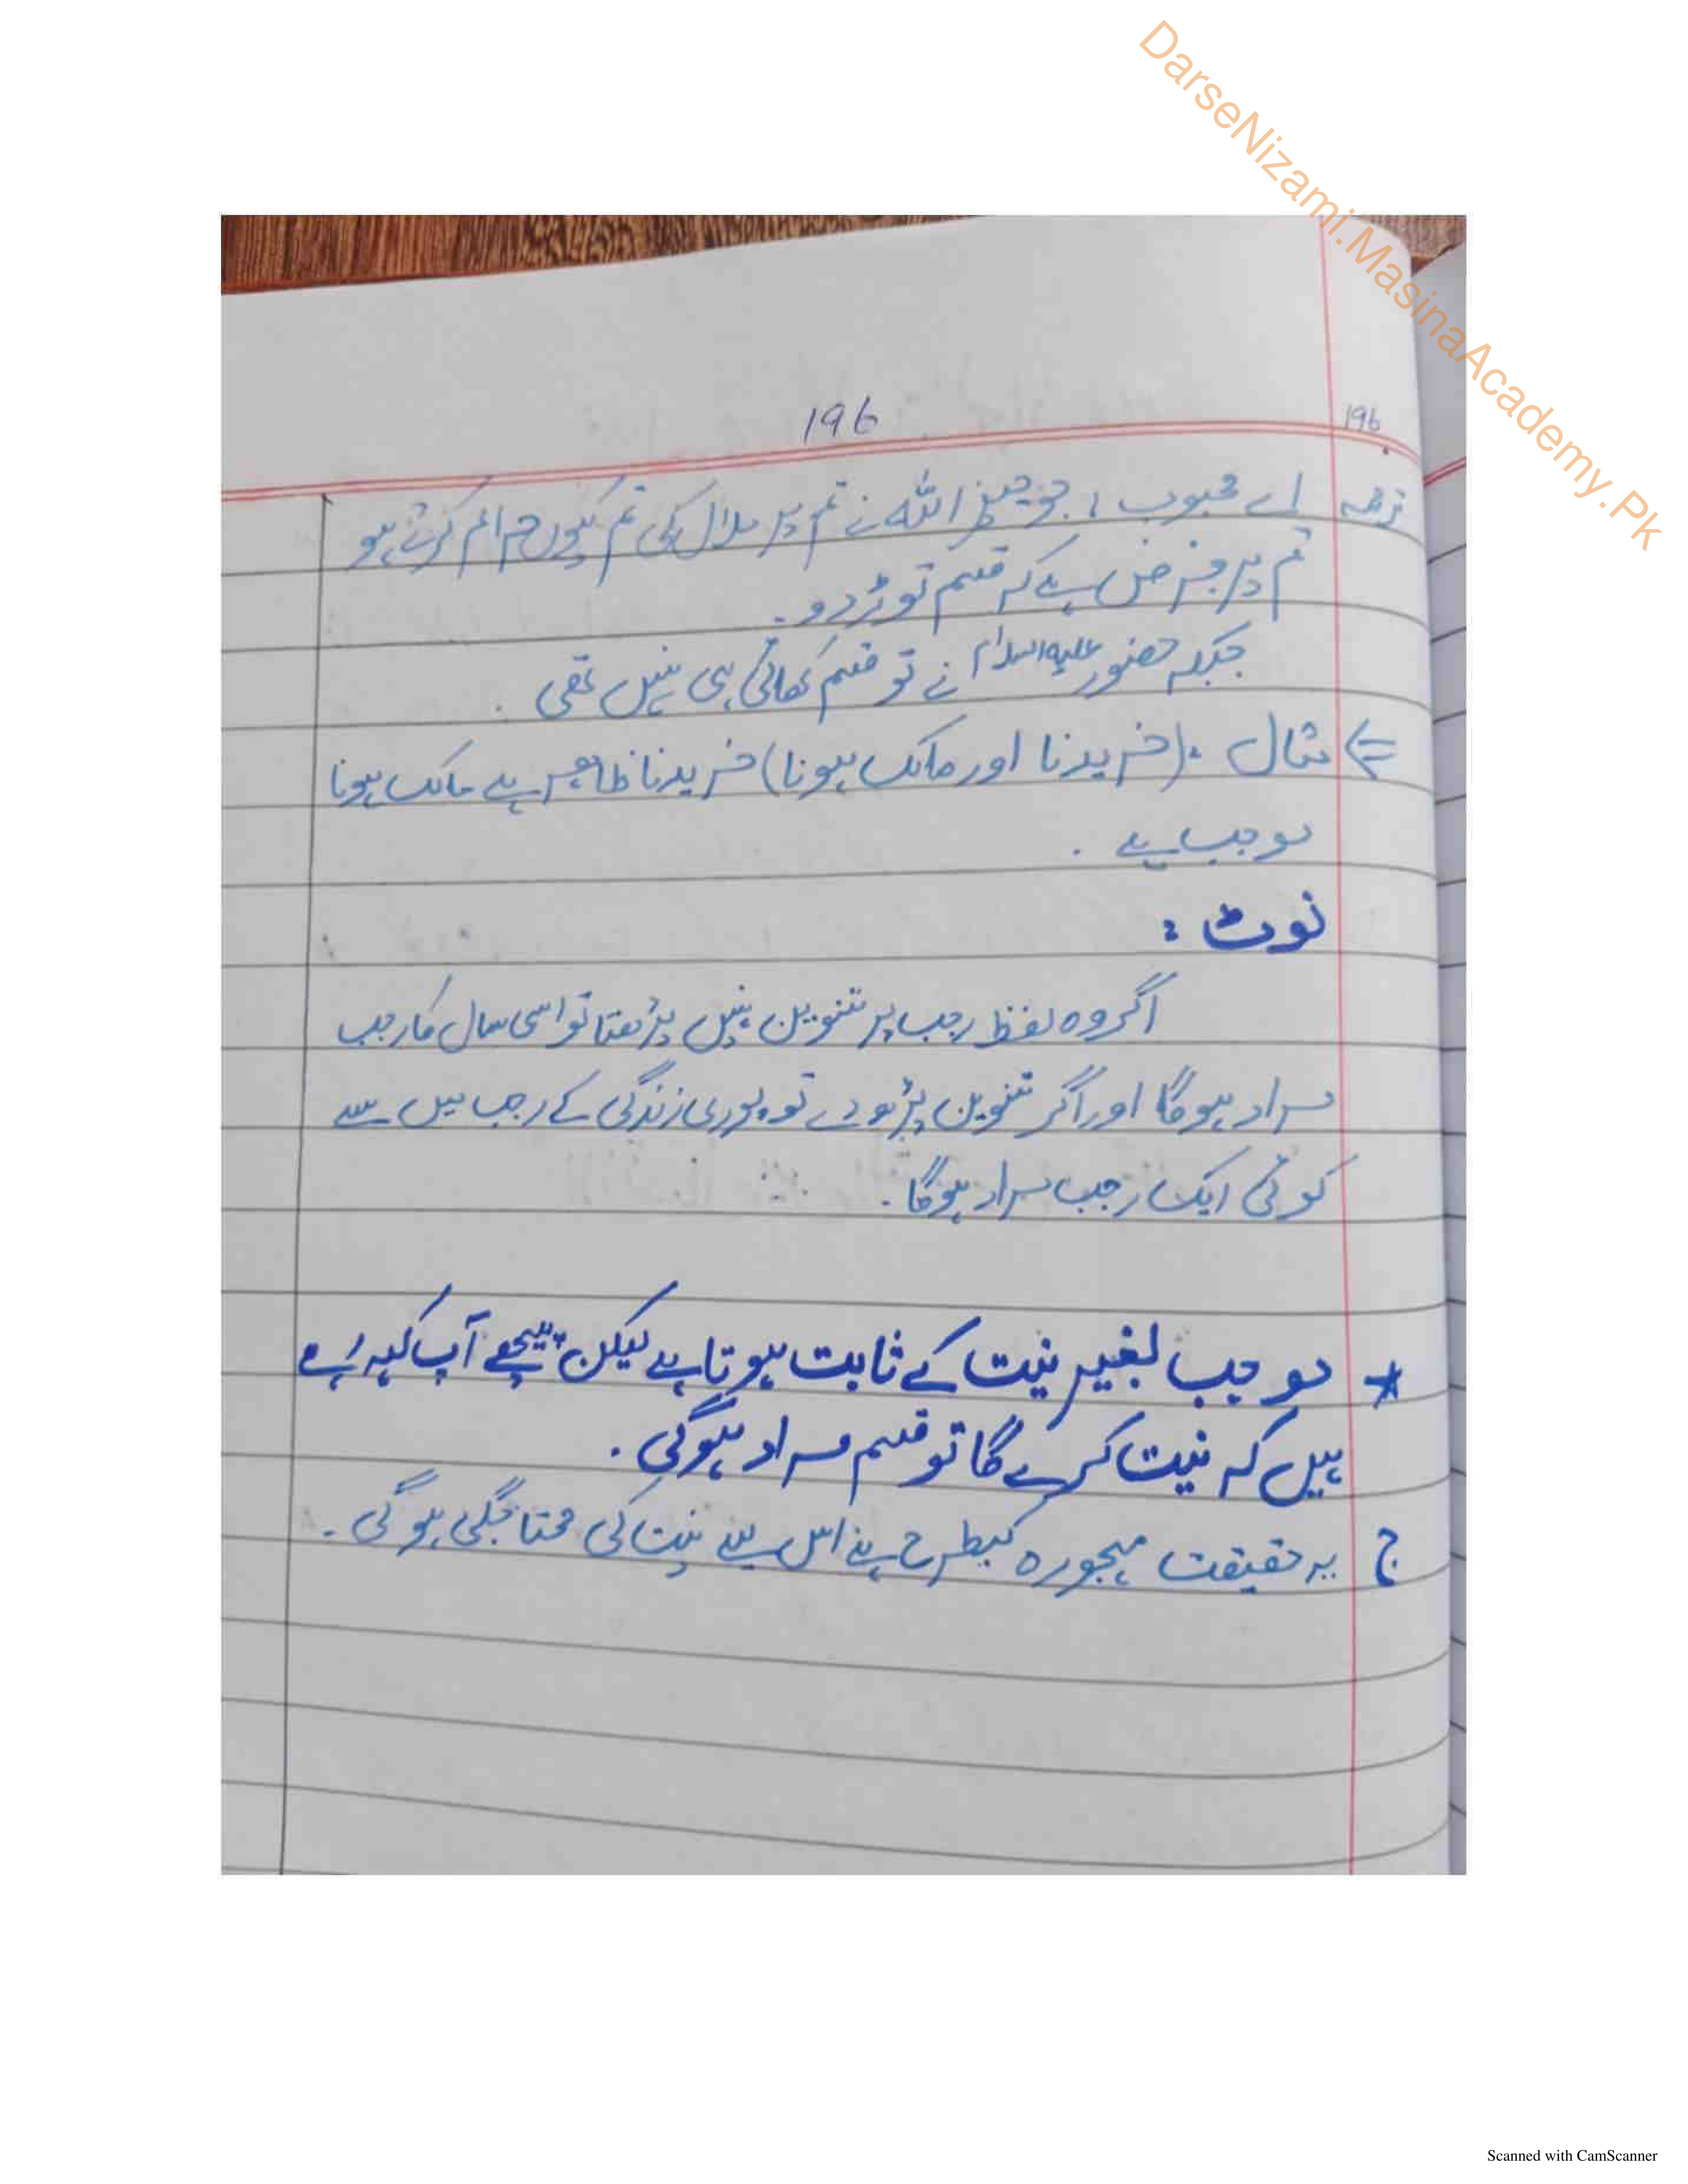 DarseNizami.MasinaAcademy.Pk
196
196
ترجمہ اے محبوب ! جو چیز اللہ نے تم پر حلال کی تم کیوں حرام کرتے ہو
تم پر فرض ہے کہ قسم توڑ دو۔
جبکہ حضور علیہ السلام نے تو قسم کھائی ہی نہیں تھی ۔
⇐ مثال :(خریدنا اور مالک ہونا) خریدنا ظاہر ہے مالک ہونا
موجب ہے ۔
نوٹ :
اگر وہ لفظ رجب پر تنوین نہیں پڑھتا تو اسی سال کا رجب
مراد ہوگا اور اگر تنوین پڑھ دے تو پوری زندگی کے رجب میں سے
کوئی ایک رجب مراد ہوگا۔
* موجب بغیر نیت کے ثابت ہوتا ہے لیکن پیچھے آپ کہہ رہے
ہیں کہ نیت کرے گا تو قسم مراد ہوگی ۔
ج یہ حقیقت مہجورہ کیطرح ہے اس لیے نیت کی محتاجگی ہوگی ۔
Scanned with CamScanner